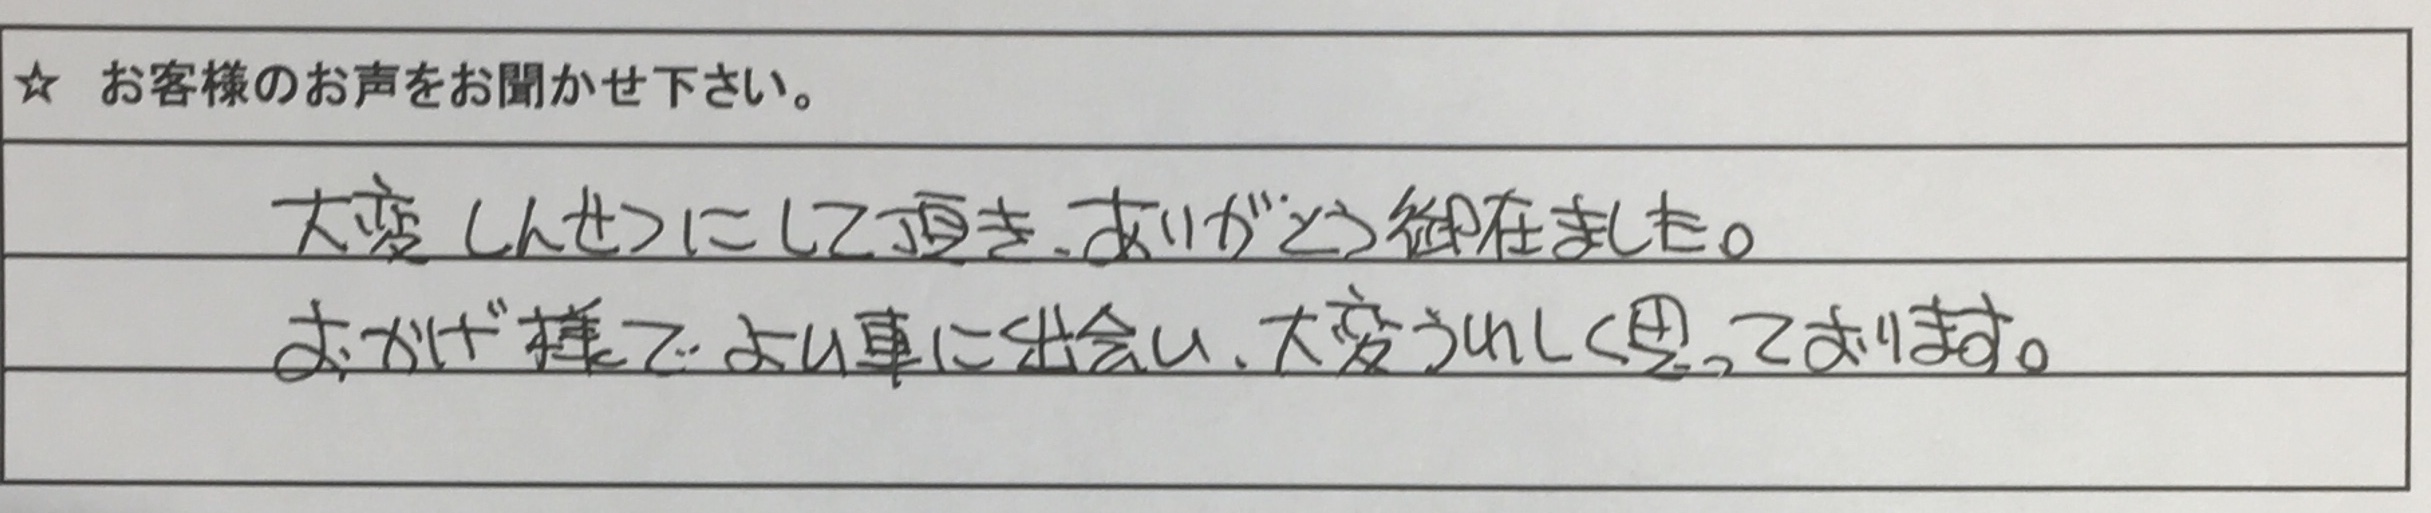 ☆ お客様のお声をお聞かせ下さい。
大変しんせつにして頂き、ありがとう御在ました。
おかげ様でよい車に出会い、大変うれしく思っております。